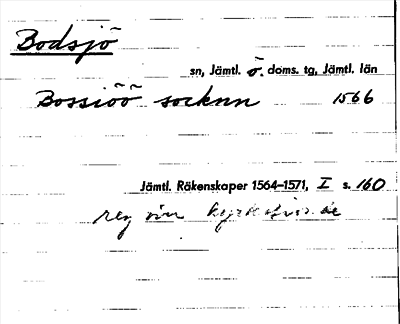 Bodsjö
sn, Jämtl. ö. doms. tg, Jämtl. län
Bossiöö socknn 1566
Jämtl. Räkenskaper 1564–1571, I s. 160
reg över